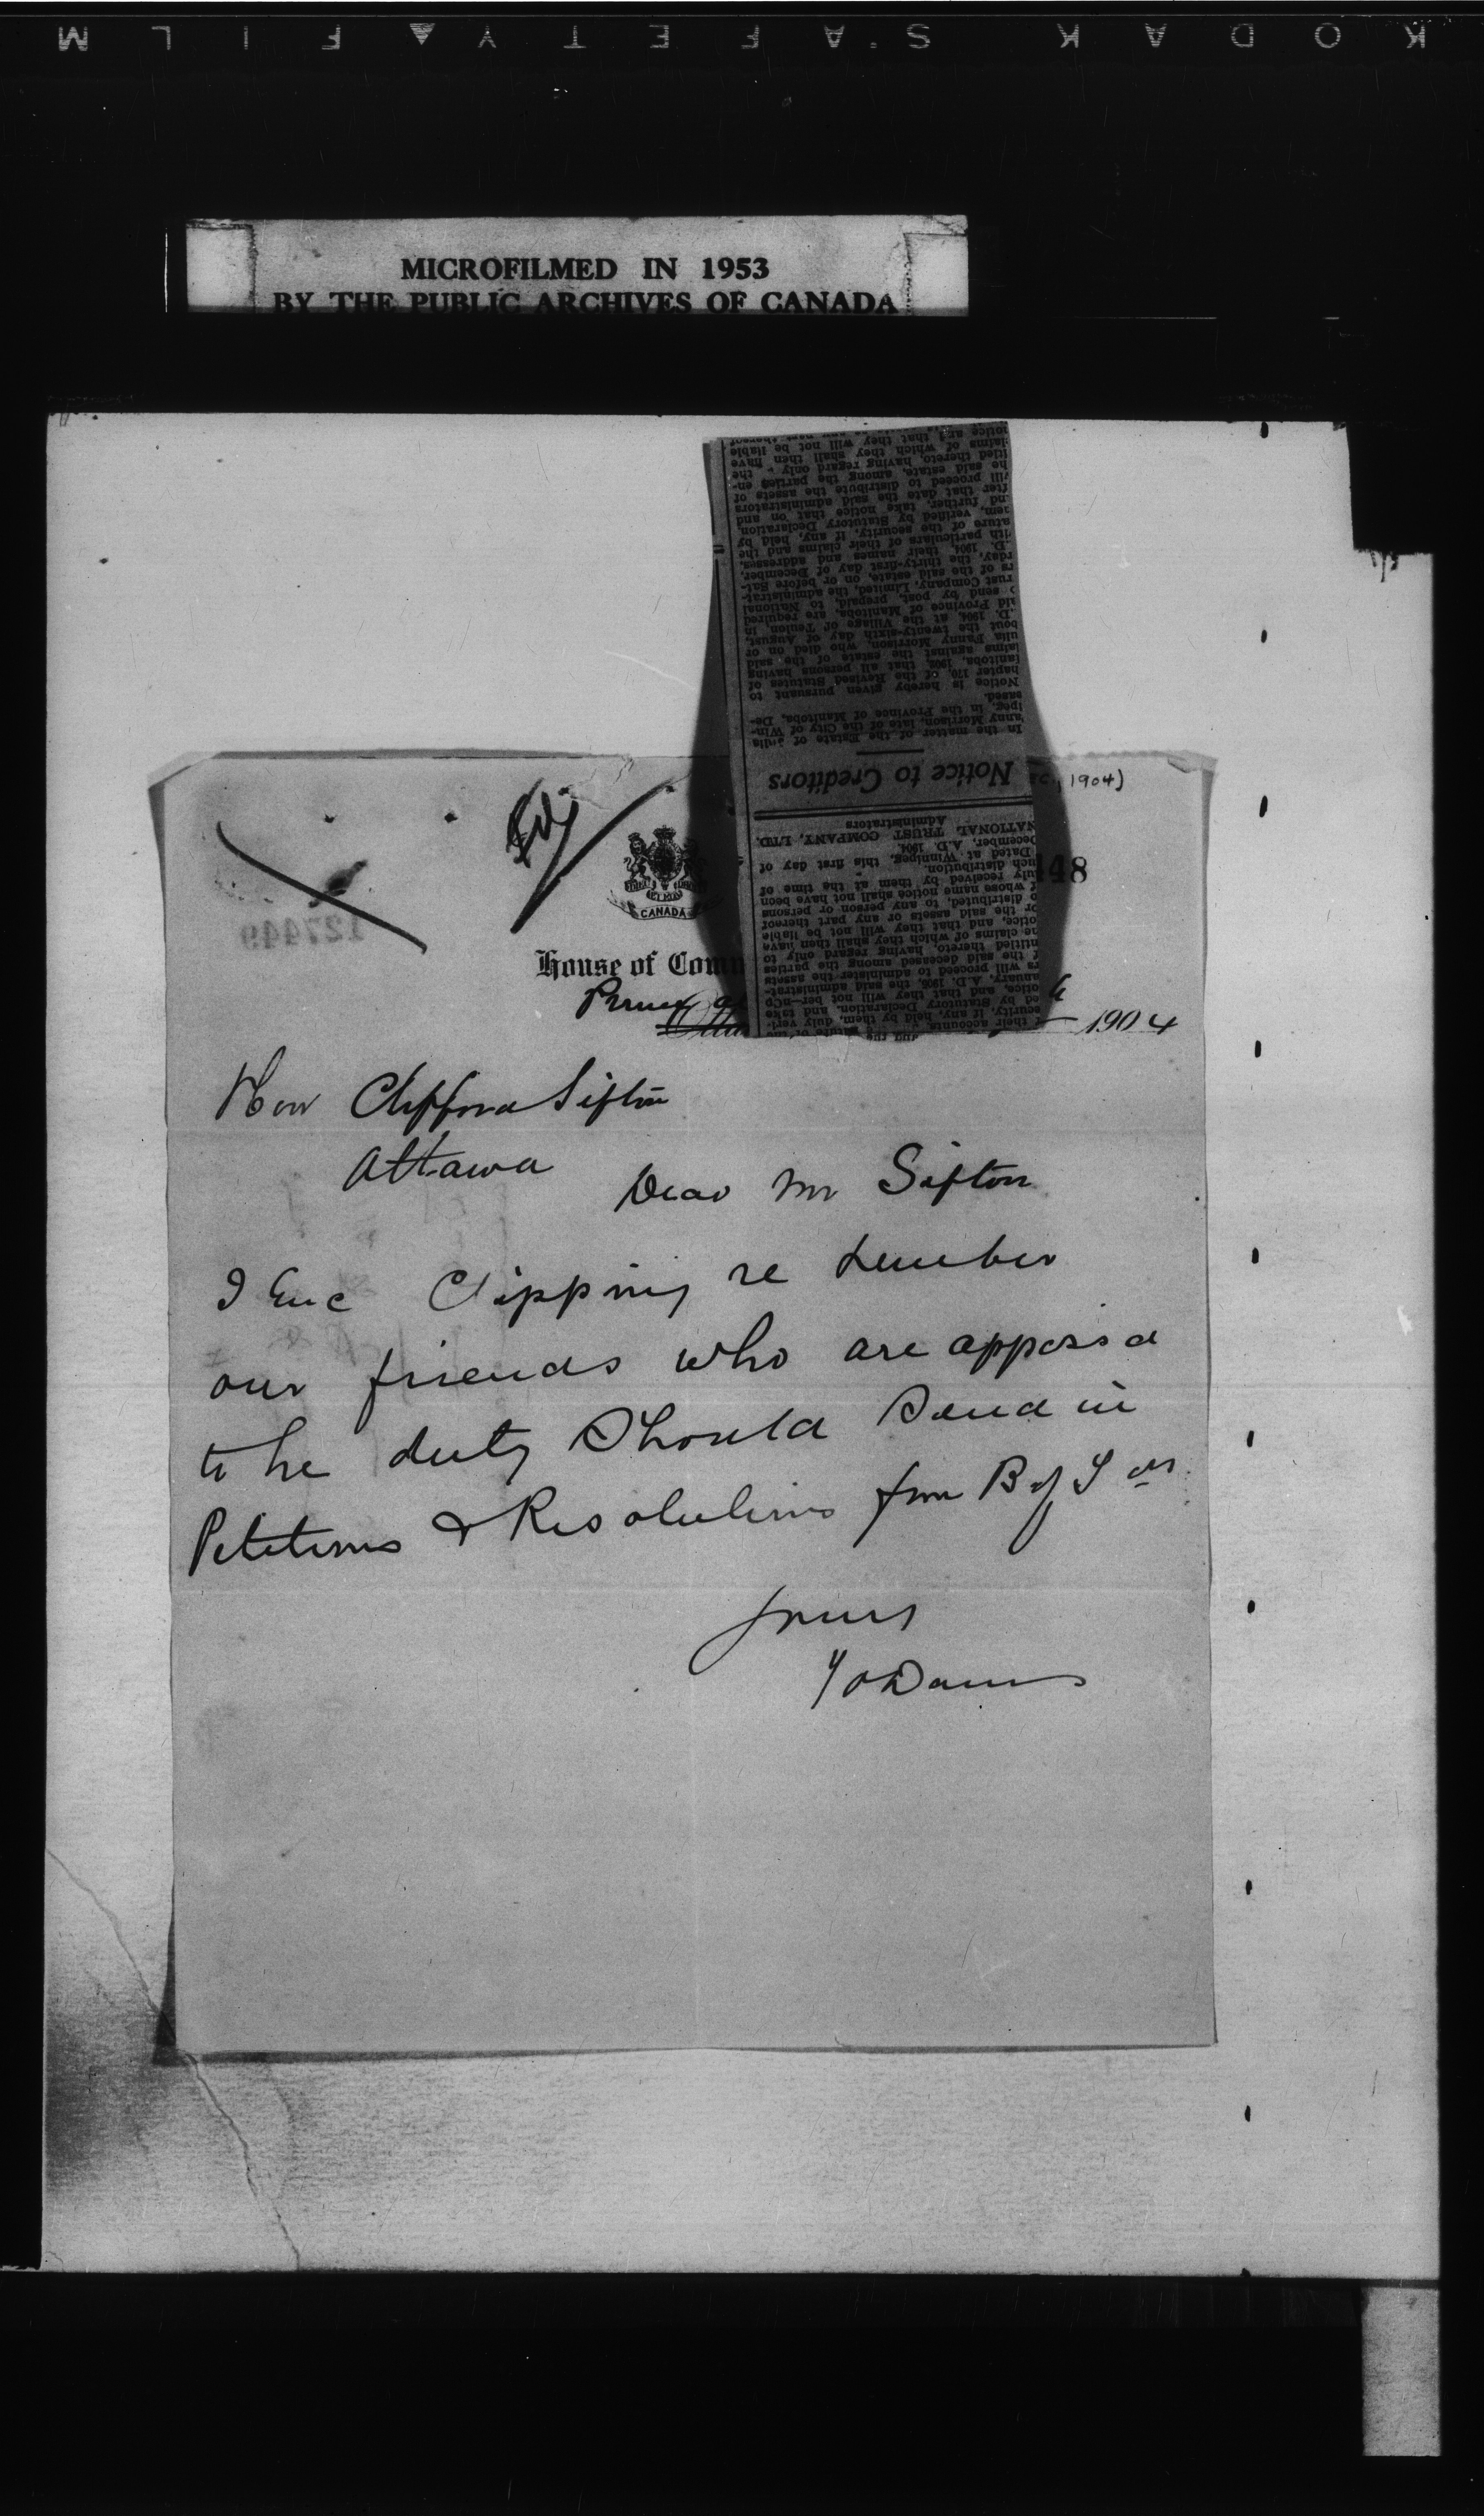 KODAK SAFETY FILM
MICROFILMED IN 1953
BY THE PUBLIC ARCHIVES OF CANADA
notice and that they will not be liable
laims of which they shall then have
itled thereto, having regard only the
he said estate, among the parties en-
ill proceed to distribute the assets of
fter that date the said administrators
nd further, take notice that on and
em, verified by Statutory Declaration,
ature of the security, if any, held by
ith particulars of their claims and the
.D. 1904, their names and addresses,
rday, the thirty-first day of December,
rs of the said estate, on or before Sat-
rust Company, Limited, the administrat-
send by post, prepaid, to National
aid Province of Manitoba, are required
.D. 1904, at the Village of Teulon, in
bout the twenty-sixth day of August,
ulia Fanny Morrison, who died on or
laims against the estate of the said
Manitoba, 1902, that all persons having
hapter 170, of the Revised Statutes of
Notice is hereby given pursuant to
eased.
ipeg, in the Province of Manitoba, De-
anny Morrison, late of the City of Win-
In the matter of the Estate of Julia
Notice to Creditors
1904)
NATIONAL TRUST COMPANY, LTD,
Administrators
December, A.D. 1904.
Dated at Winnipeg, this first day of
uch distribution.
uly received by them at the time of
f whose name notice shall not have been
o distributed, to any person or persons
or the said assets or any part thereof
notice, and that they will not be liable
he claims of which they shall then have
ntitled thereto, having regard only to
f the said deceased among the parties
rs will proceed to administer the assets
anuary, A.D. 1905, the said administrat-
ed by Statutory Declaration, and take
ecurity, if any, held by them, duly veri-
48
127449
CANADA
House of Com
1904
Hon Clifford Sifton
Ottawa
Dear Mr Sifton
I Enc Clipping re Lumber
our friends who are opposed
to the duty Should Send in
Petitions & Resolutions from B of T etc
Yours
T O Davis